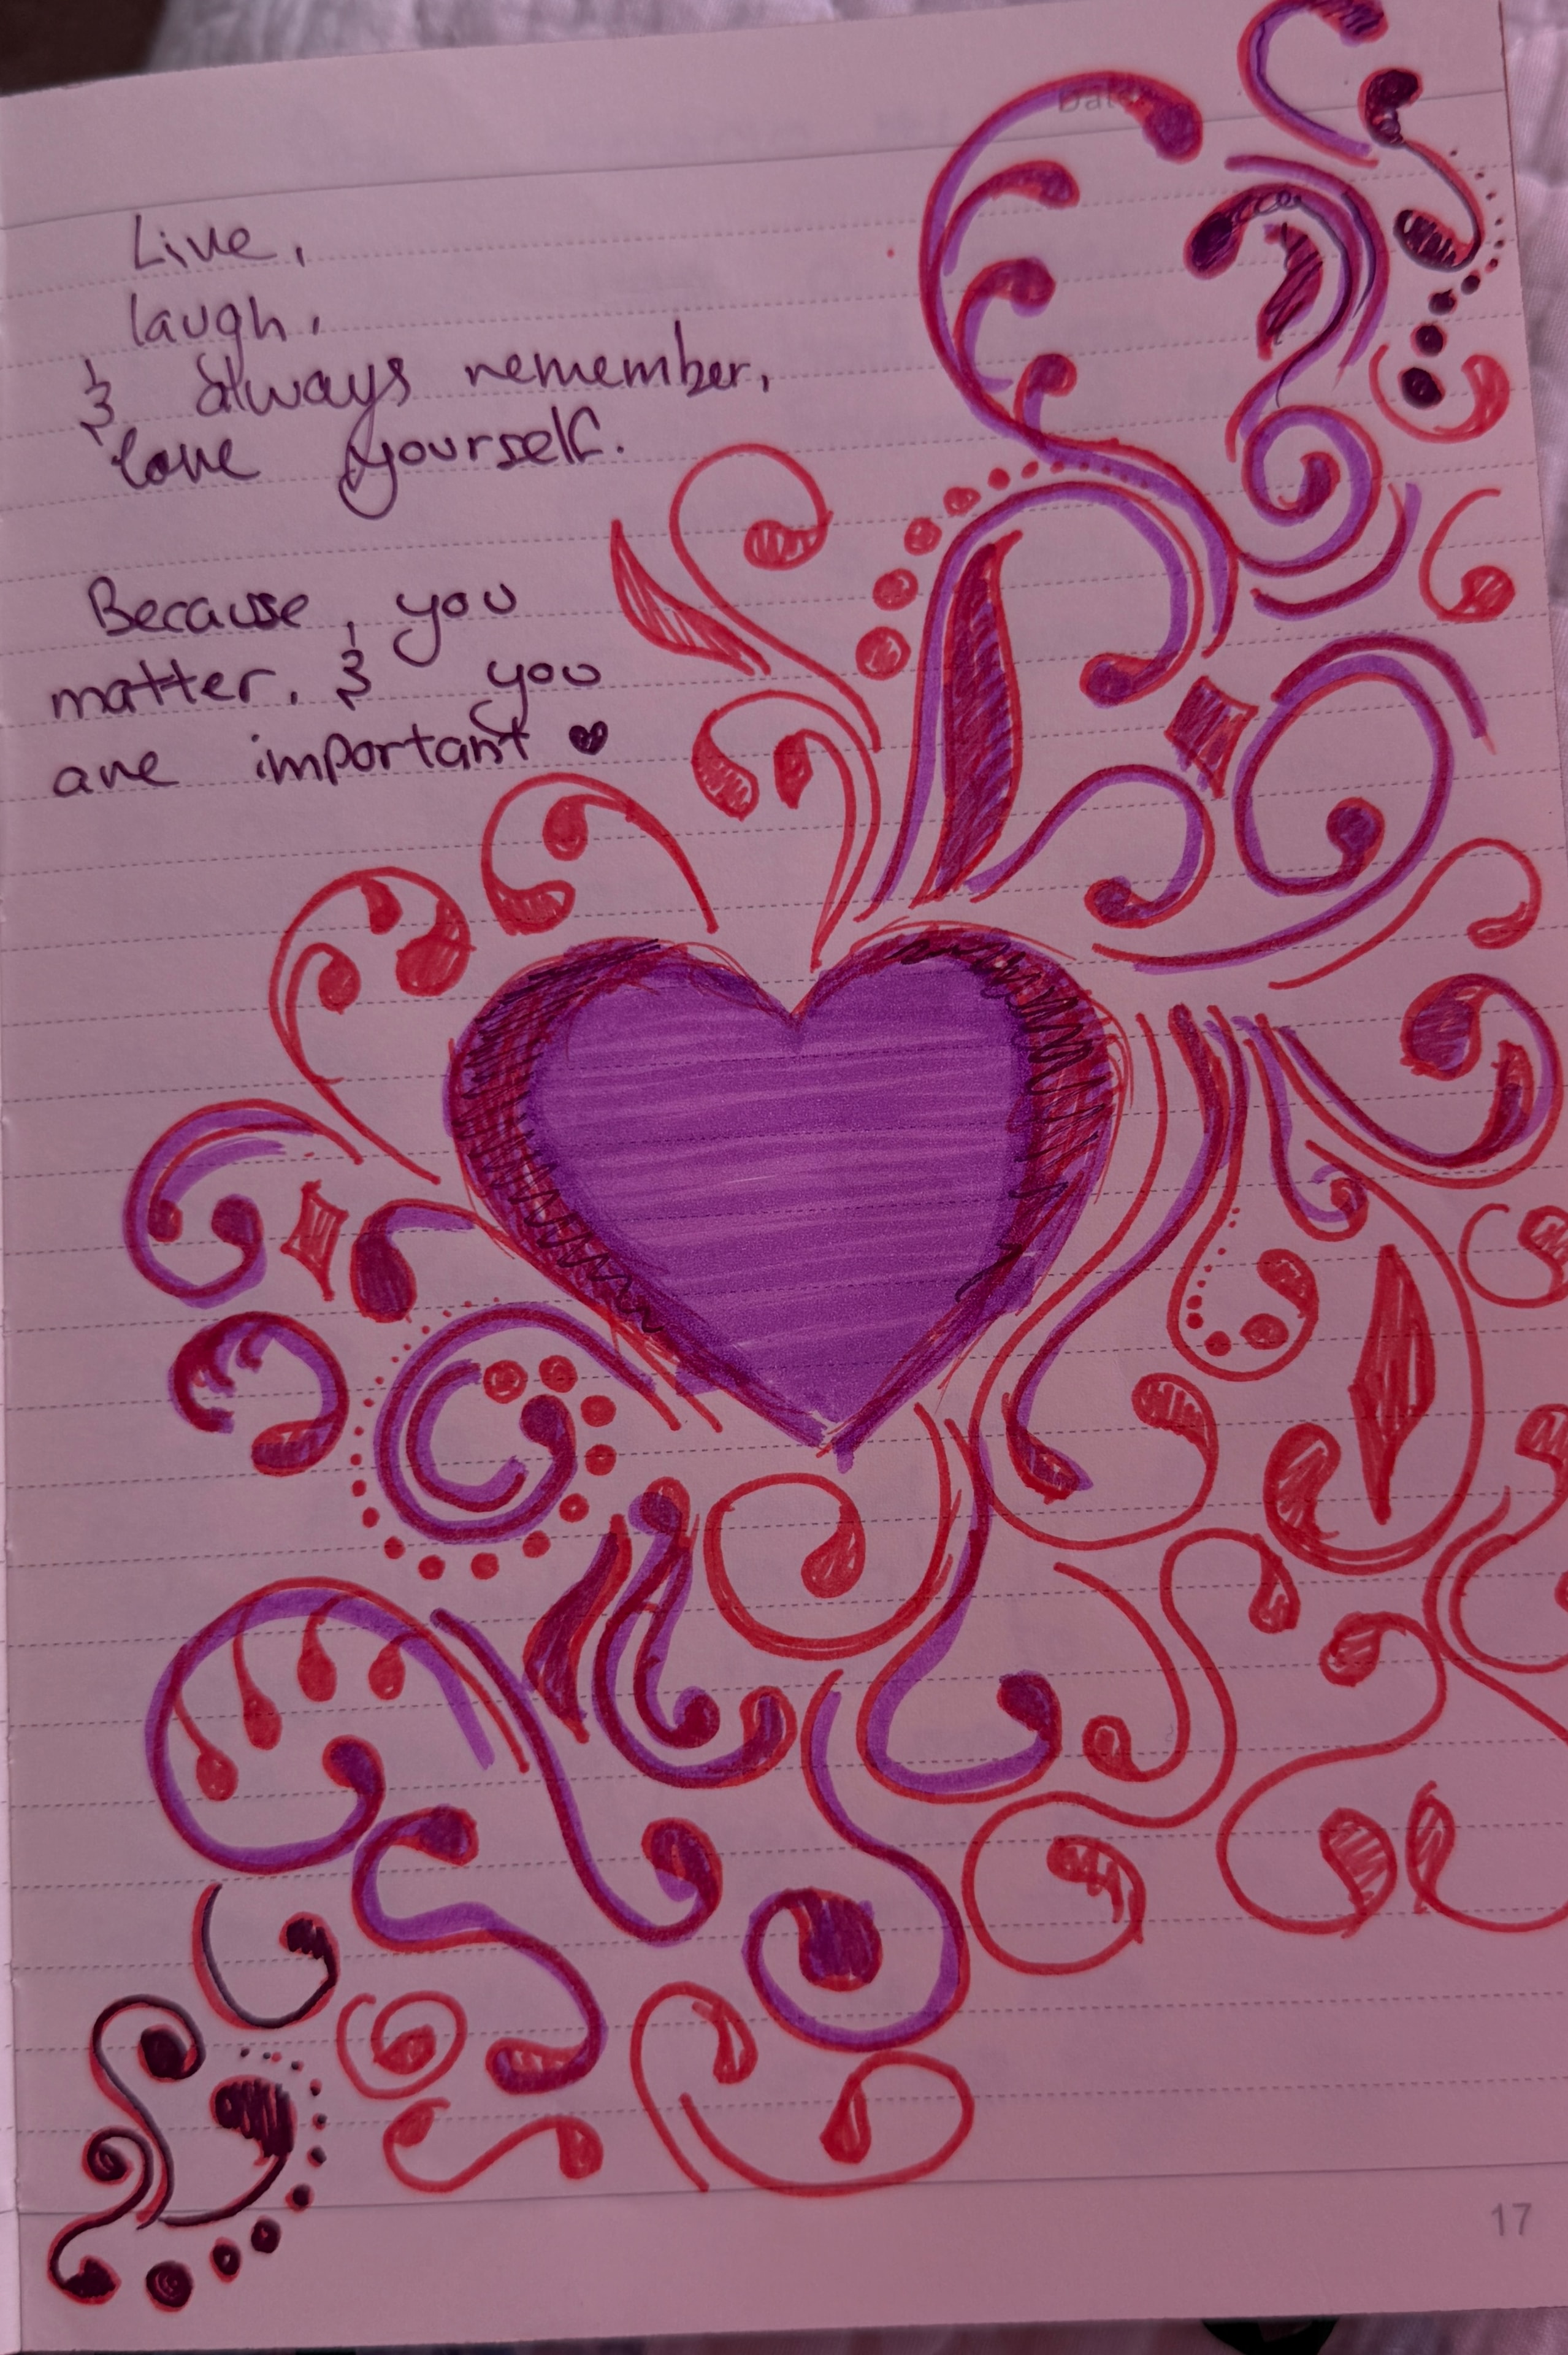 Date
Live,
laugh,
& always remember,
love yourself.
Because, you
matter, & you
are important ♥
17